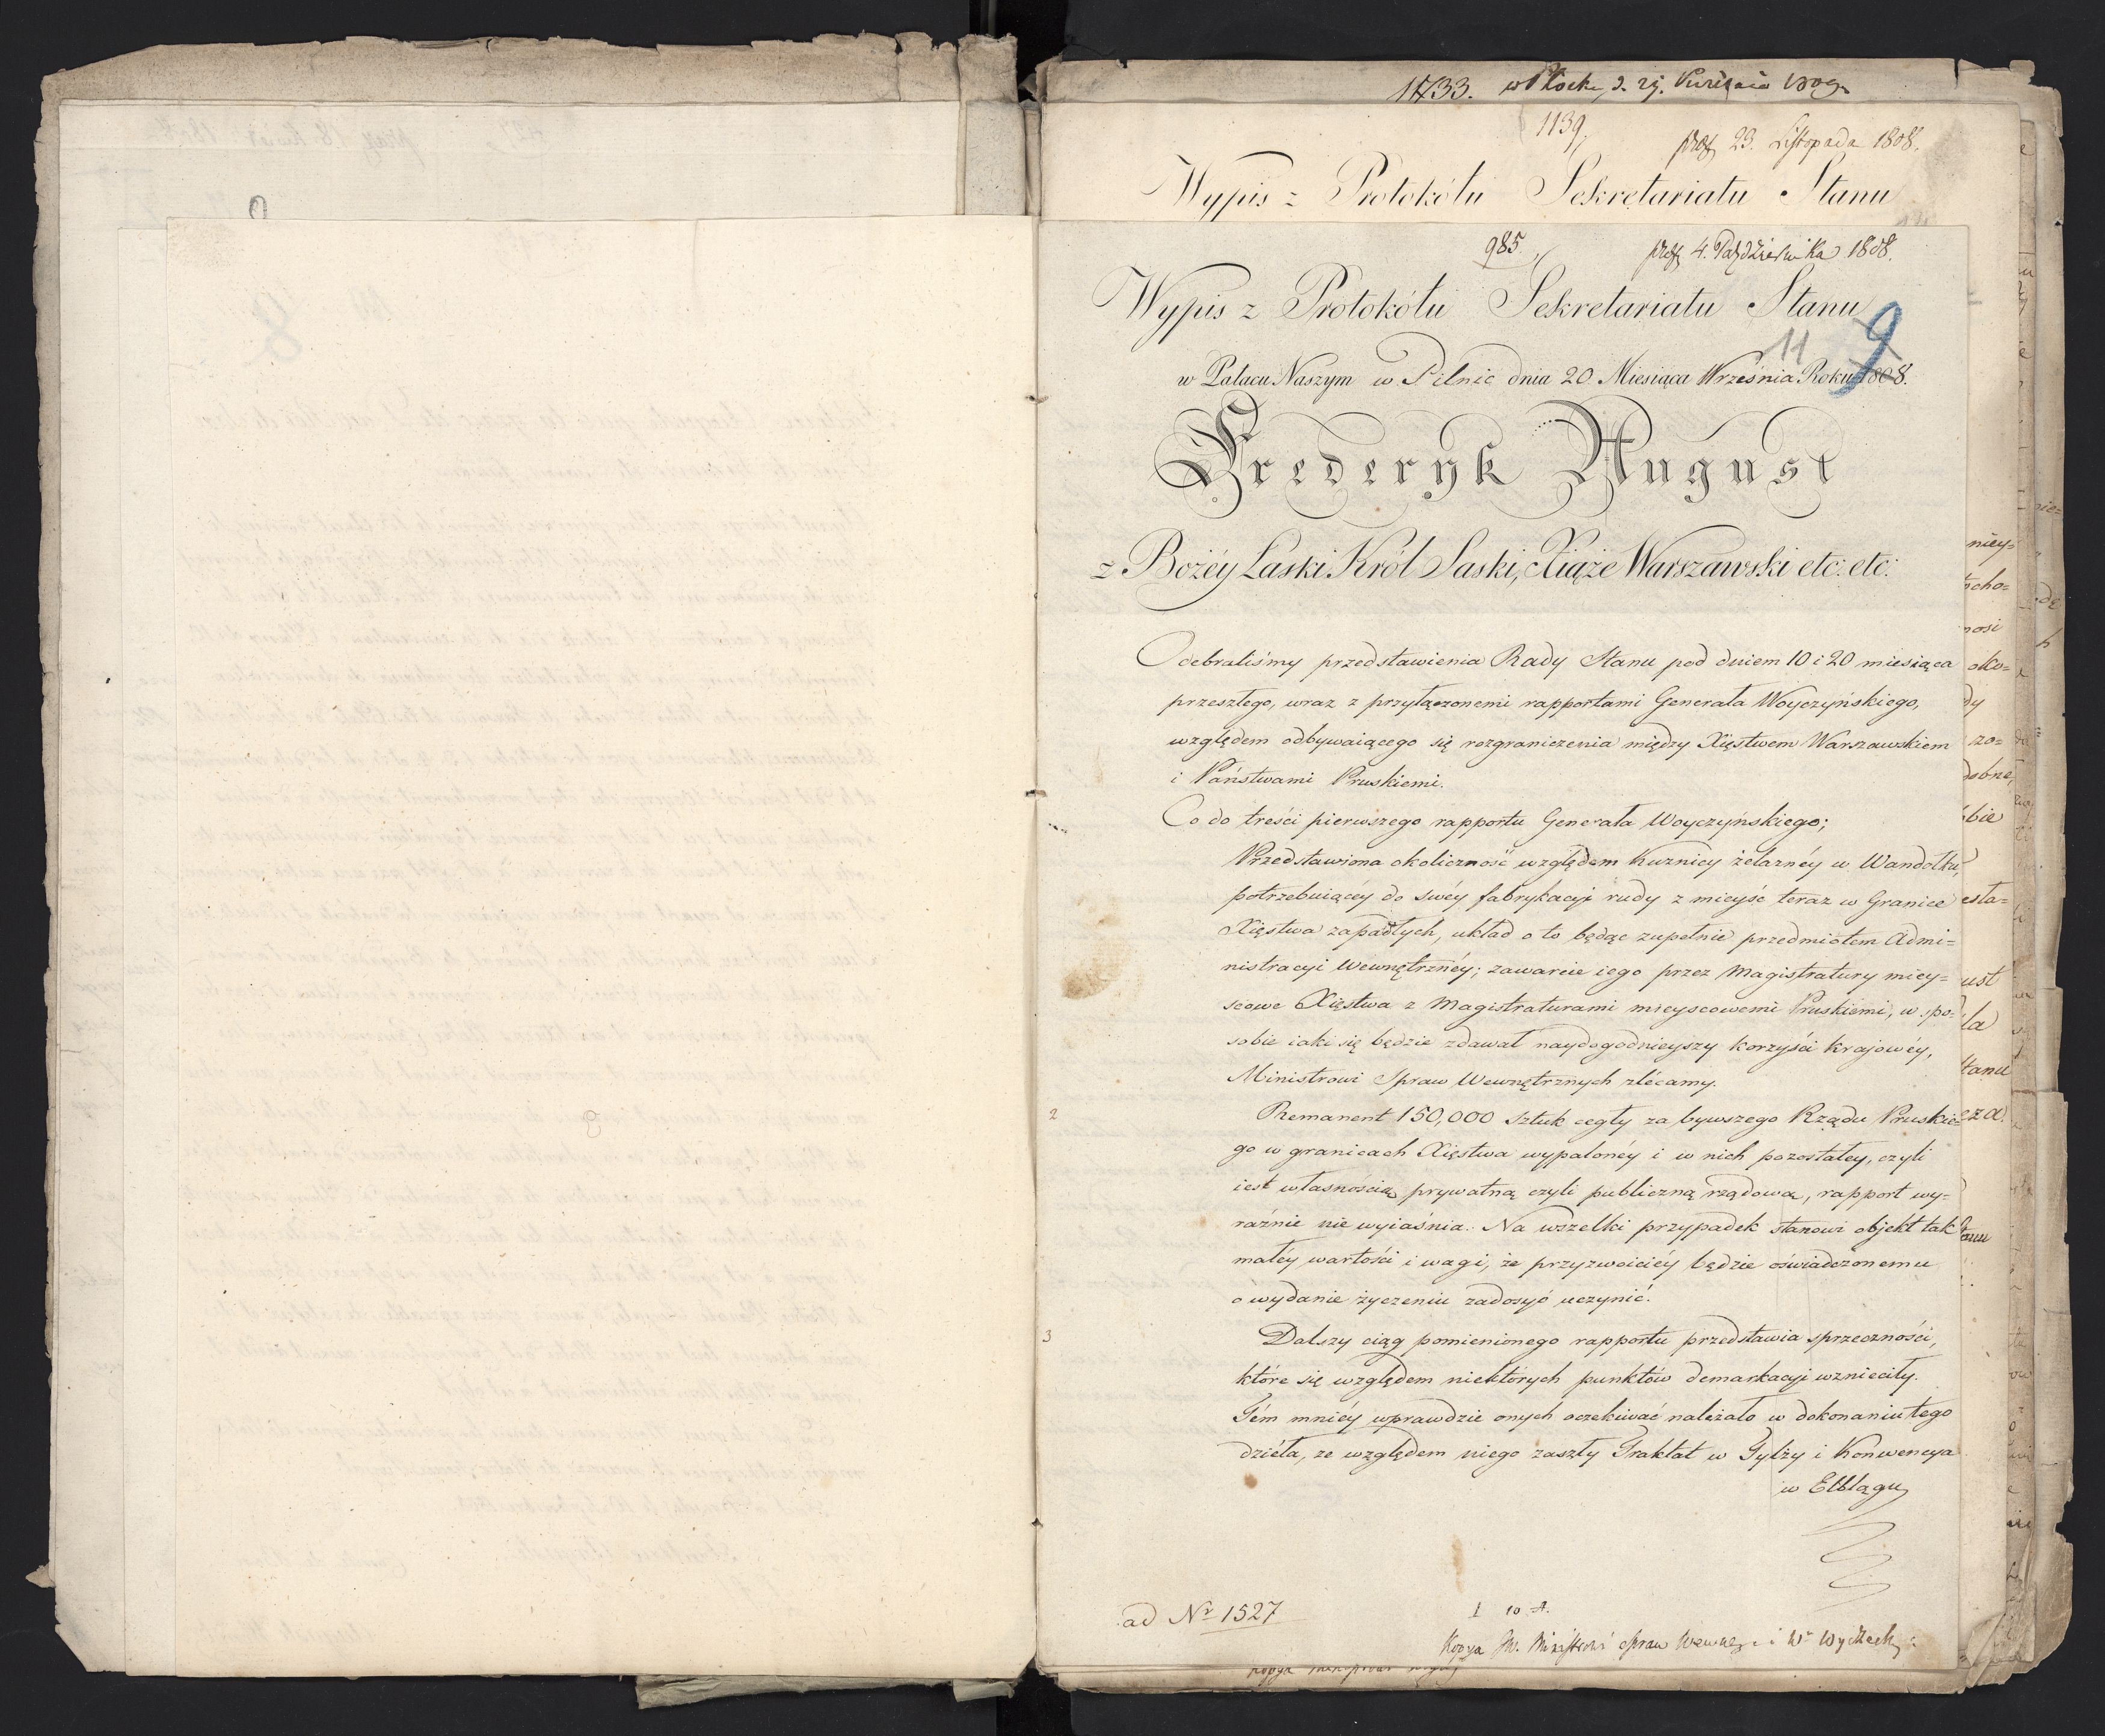 1733.
1139.
23. Listopada 1808.
Wypis z Protokółu Sekretariatu Stanu
985.
4. Października 1808.
Wypis z Protokółu Sekretariatu Stanu
11
9
w Pałacu Naszym w Pilnic dnia 20 Miesiąca Września Roku 1808.
Fryderyk August
z Bożéy Łaski Król Saski, Xiąże Warszawski etc: etc:
Odebraliśmy przedstawienia Rady Stanu pod dniem 10 i 20 miesiąca
przeszłego, wraz z przyłączonemi rapportami Generała Woyczyńskiego,
względem odbywaiącego się rozgraniczenia między Xięstwem Warszawskiem
i Państwami Pruskiemi.
Co do treści pierwszego rapportu Generała Woyczyńskiego;
Przedstawiona okoliczność względem Kuznicy żelaznéy w Wandołku,
potrzebuiącéy do swéy fabrykacyi rudy z mieyść teraz w Granice
Xięstwa zapadłych, układ o to będąc zupełnie przedmiotem Admi=
nistracyi Wewnętrznéy; zawarcie iego przez Magistratury miey=
scowe Xięstwa z Magistraturami mieyscowemi Pruskiemi, w spo=
sobie iaki się będzie zdawał naydogodnieyszy korzyści krajowéy,
Ministrowi Spraw Wewnętrznych zlécamy.
2
Remanent 150,000 sztuk cegły za bywszego Rządu Pruskie=
go w granicach Xięstwa wypalonéy i w nich pozostałey, czyli
iest własnością prywatną czyli publiczną rządową, rapport wy=
raźnie nie wyiaśnia. Na wszelki przypadek stanowi objekt tak
małéy wartości i wagi, że przyzwoiciéy będzie oświadczonemu
o wydanie życzeniu zadosyć uczynić.
3
Dalszy ciąg pomienionego rapportu przedstawia sprzeczności,
które się względem niektórych punktów demarkacyi wznieciły.
Tém mniéy wprawdzie onych oczekiwać należało w dokonaniu tego
dzieła, że względem niego zaszły Traktat w Tylży i Konwencya
w Elblągu
ad Nr 1527
Kopja JW. Ministrowi Spraw Wewnęz: i